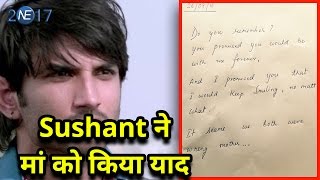 2 NE 17
Do you remember?
you promised you would be
with me forever,
And I promised you that
I would keep smiling, no matter
what.
It seems we both were
wrong mother...
Sushant ने
मां को किया याद